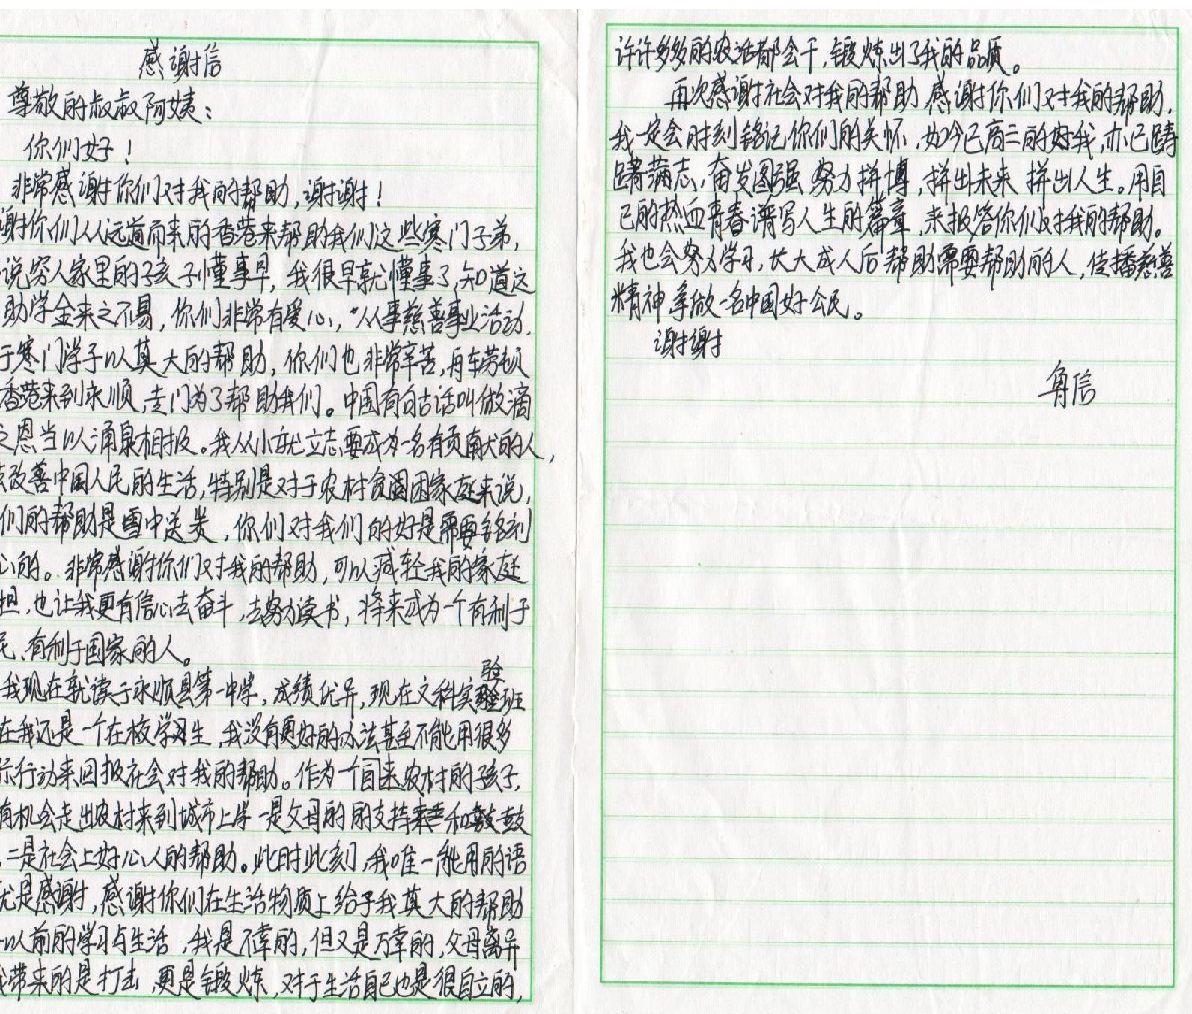 感谢信
尊敬的叔叔阿姨：
你们好！
非常感谢你们对我的帮助，谢谢！
谢你们从远道而来的香港来帮助我们这些寒门子弟，
说穷人家里的孩子懂事早，我很早就懂事了，知道这
助学金来之不易，你们非常有爱心，从事慈善事业活动，
于寒门学子以莫大的帮助，你们也非常辛苦，舟车劳顿
香港来到永顺，专门为了帮助我们。中国有句古话叫做滴
之恩当以涌泉相报。我从小就立志要成为一名有贡献的人，
去改善中国人民的生活，特别是对于农村贫困家庭来说，
们的帮助是雪中送炭，你们对我们的好是需要铭刻
心的。非常感谢你们对我的帮助，可以减轻我的家庭
担，也让我更有信心去奋斗，去努力读书，将来成为一个有利于
民、有利于国家的人。
我现在就读于永顺县第一中学，成绩优异，现在文科实验班
在我还是一个在校学习生，我没有更好的办法甚至不能用很多
行动来回报社会对我的帮助。作为一个自来农村的孩子，
有机会走出农村来到城市上学一是父母的的支持和鼓
，二是社会上好心人的帮助。此时此刻，我唯一能用的语
就是感谢，感谢你们在生活物质上给予我莫大的帮助
以前的学习与生活，我是不幸的，但又是万幸的，父母离异
我带来的是打击，更是锻炼，对于生活自己也是很自立的，
许许多多的农活都会干，锻炼出了我的品质。
再次感谢社会对我的帮助，感谢你们对我的帮助，
我一定会时刻铭记你们的关怀，如今已高三的好我，亦已踌
躇满志，奋发图强，努力拼搏，拼出未来，拼出人生。用自
己的热血青春谱写人生的篇章，来报答你们对我的帮助。
我也会努力学习，长大成人后帮助需要帮助的人，传播慈善
精神，争做一名中国好公民。
谢谢
鲁信